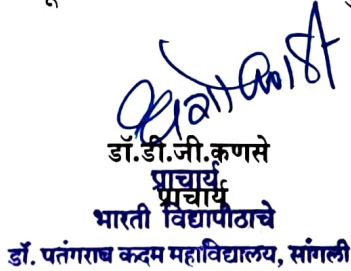 डॉ.डी.जी.कणसे
प्राचार्य
प्राचार्य
भारती विद्यापीठाचे
डॉ. पतंगराव कदम महाविद्यालय, सांगली